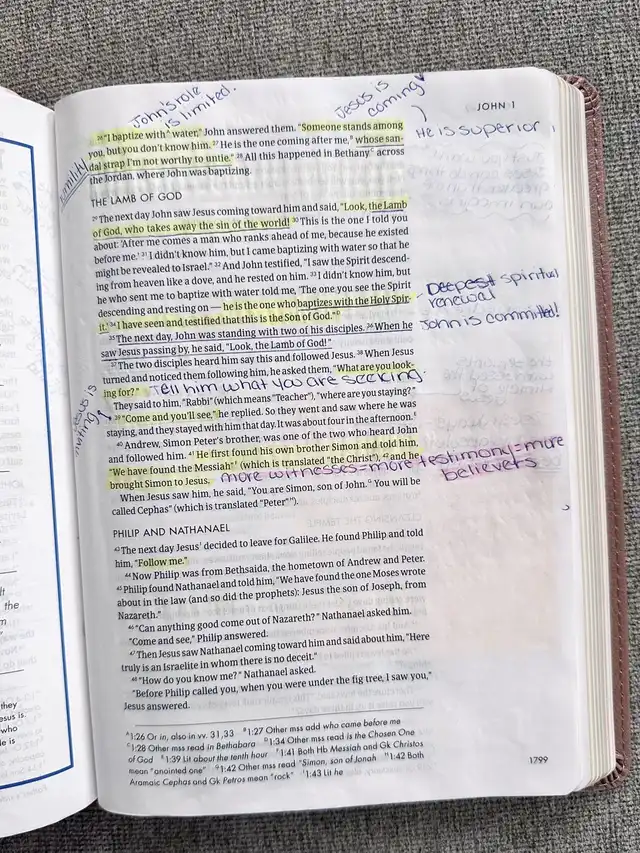 John's role
is limited.
Jesus is
coming
JOHN 1
He is superior
humility
26 "I baptize with^A water," John answered them. "Someone stands among
you, but you don't know him. 27 He is the one coming after me,^B whose san-
dal strap I'm not worthy to untie." 28 All this happened in Bethany^C across
the Jordan, where John was baptizing.
THE LAMB OF GOD
29 The next day John saw Jesus coming toward him and said, "Look, the Lamb
of God, who takes away the sin of the world! 30 This is the one I told you
about: 'After me comes a man who ranks ahead of me, because he existed
before me.' 31 I didn't know him, but I came baptizing with water so that he
might be revealed to Israel." 32 And John testified, "I saw the Spirit descend-
ing from heaven like a dove, and he rested on him. 33 I didn't know him, but
he who sent me to baptize with water told me, 'The one you see the Spirit
descending and resting on — he is the one who baptizes with the Holy Spir-
it.' 34 I have seen and testified that this is the Son of God."^D
Deepest spiritual
renewal
35 The next day, John was standing with two of his disciples. 36 When he
saw Jesus passing by, he said, "Look, the Lamb of God!"
John is committed!
37 The two disciples heard him say this and followed Jesus. 38 When Jesus
turned and noticed them following him, he asked them, "What are you look-
ing for?" Tell him what you are seeking.
They said to him, "Rabbi" (which means "Teacher"), "where are you staying?"
39 "Come and you'll see," he replied. So they went and saw where he was
staying, and they stayed with him that day. It was about four in the afternoon.^E
Jesus is
inviting
40 Andrew, Simon Peter's brother, was one of the two who heard John
and followed him. 41 He first found his own brother Simon and told him,
"We have found the Messiah"^F (which is translated "the Christ"), 42 and he
brought Simon to Jesus. more witnesses=more testimony=more
believers
When Jesus saw him, he said, "You are Simon, son of John.^G You will be
called Cephas" (which is translated "Peter"^H).
PHILIP AND NATHANAEL
43 The next day Jesus^I decided to leave for Galilee. He found Philip and told
him, "Follow me."
44 Now Philip was from Bethsaida, the hometown of Andrew and Peter.
45 Philip found Nathanael and told him, "We have found the one Moses wrote
about in the law (and so did the prophets): Jesus the son of Joseph, from
Nazareth."
46 "Can anything good come out of Nazareth?" Nathanael asked him.
"Come and see," Philip answered.
47 Then Jesus saw Nathanael coming toward him and said about him, "Here
truly is an Israelite in whom there is no deceit."
48 "How do you know me?" Nathanael asked.
"Before Philip called you, when you were under the fig tree, I saw you,"
Jesus answered.
^A 1:26 Or in, also in vv. 31,33 ^B 1:27 Other mss add who came before me
^C 1:28 Other mss read in Bethabara ^D 1:34 Other mss read is the Chosen One
of God ^E 1:39 Lit about the tenth hour ^F 1:41 Both Hb Messiah and Gk Christos
mean "anointed one" ^G 1:42 Other mss read "Simon, son of Jonah ^H 1:42 Both
Aramaic Cephas and Gk Petros mean "rock" ^I 1:43 Lit he
1799
the
they
esus is
who
le is